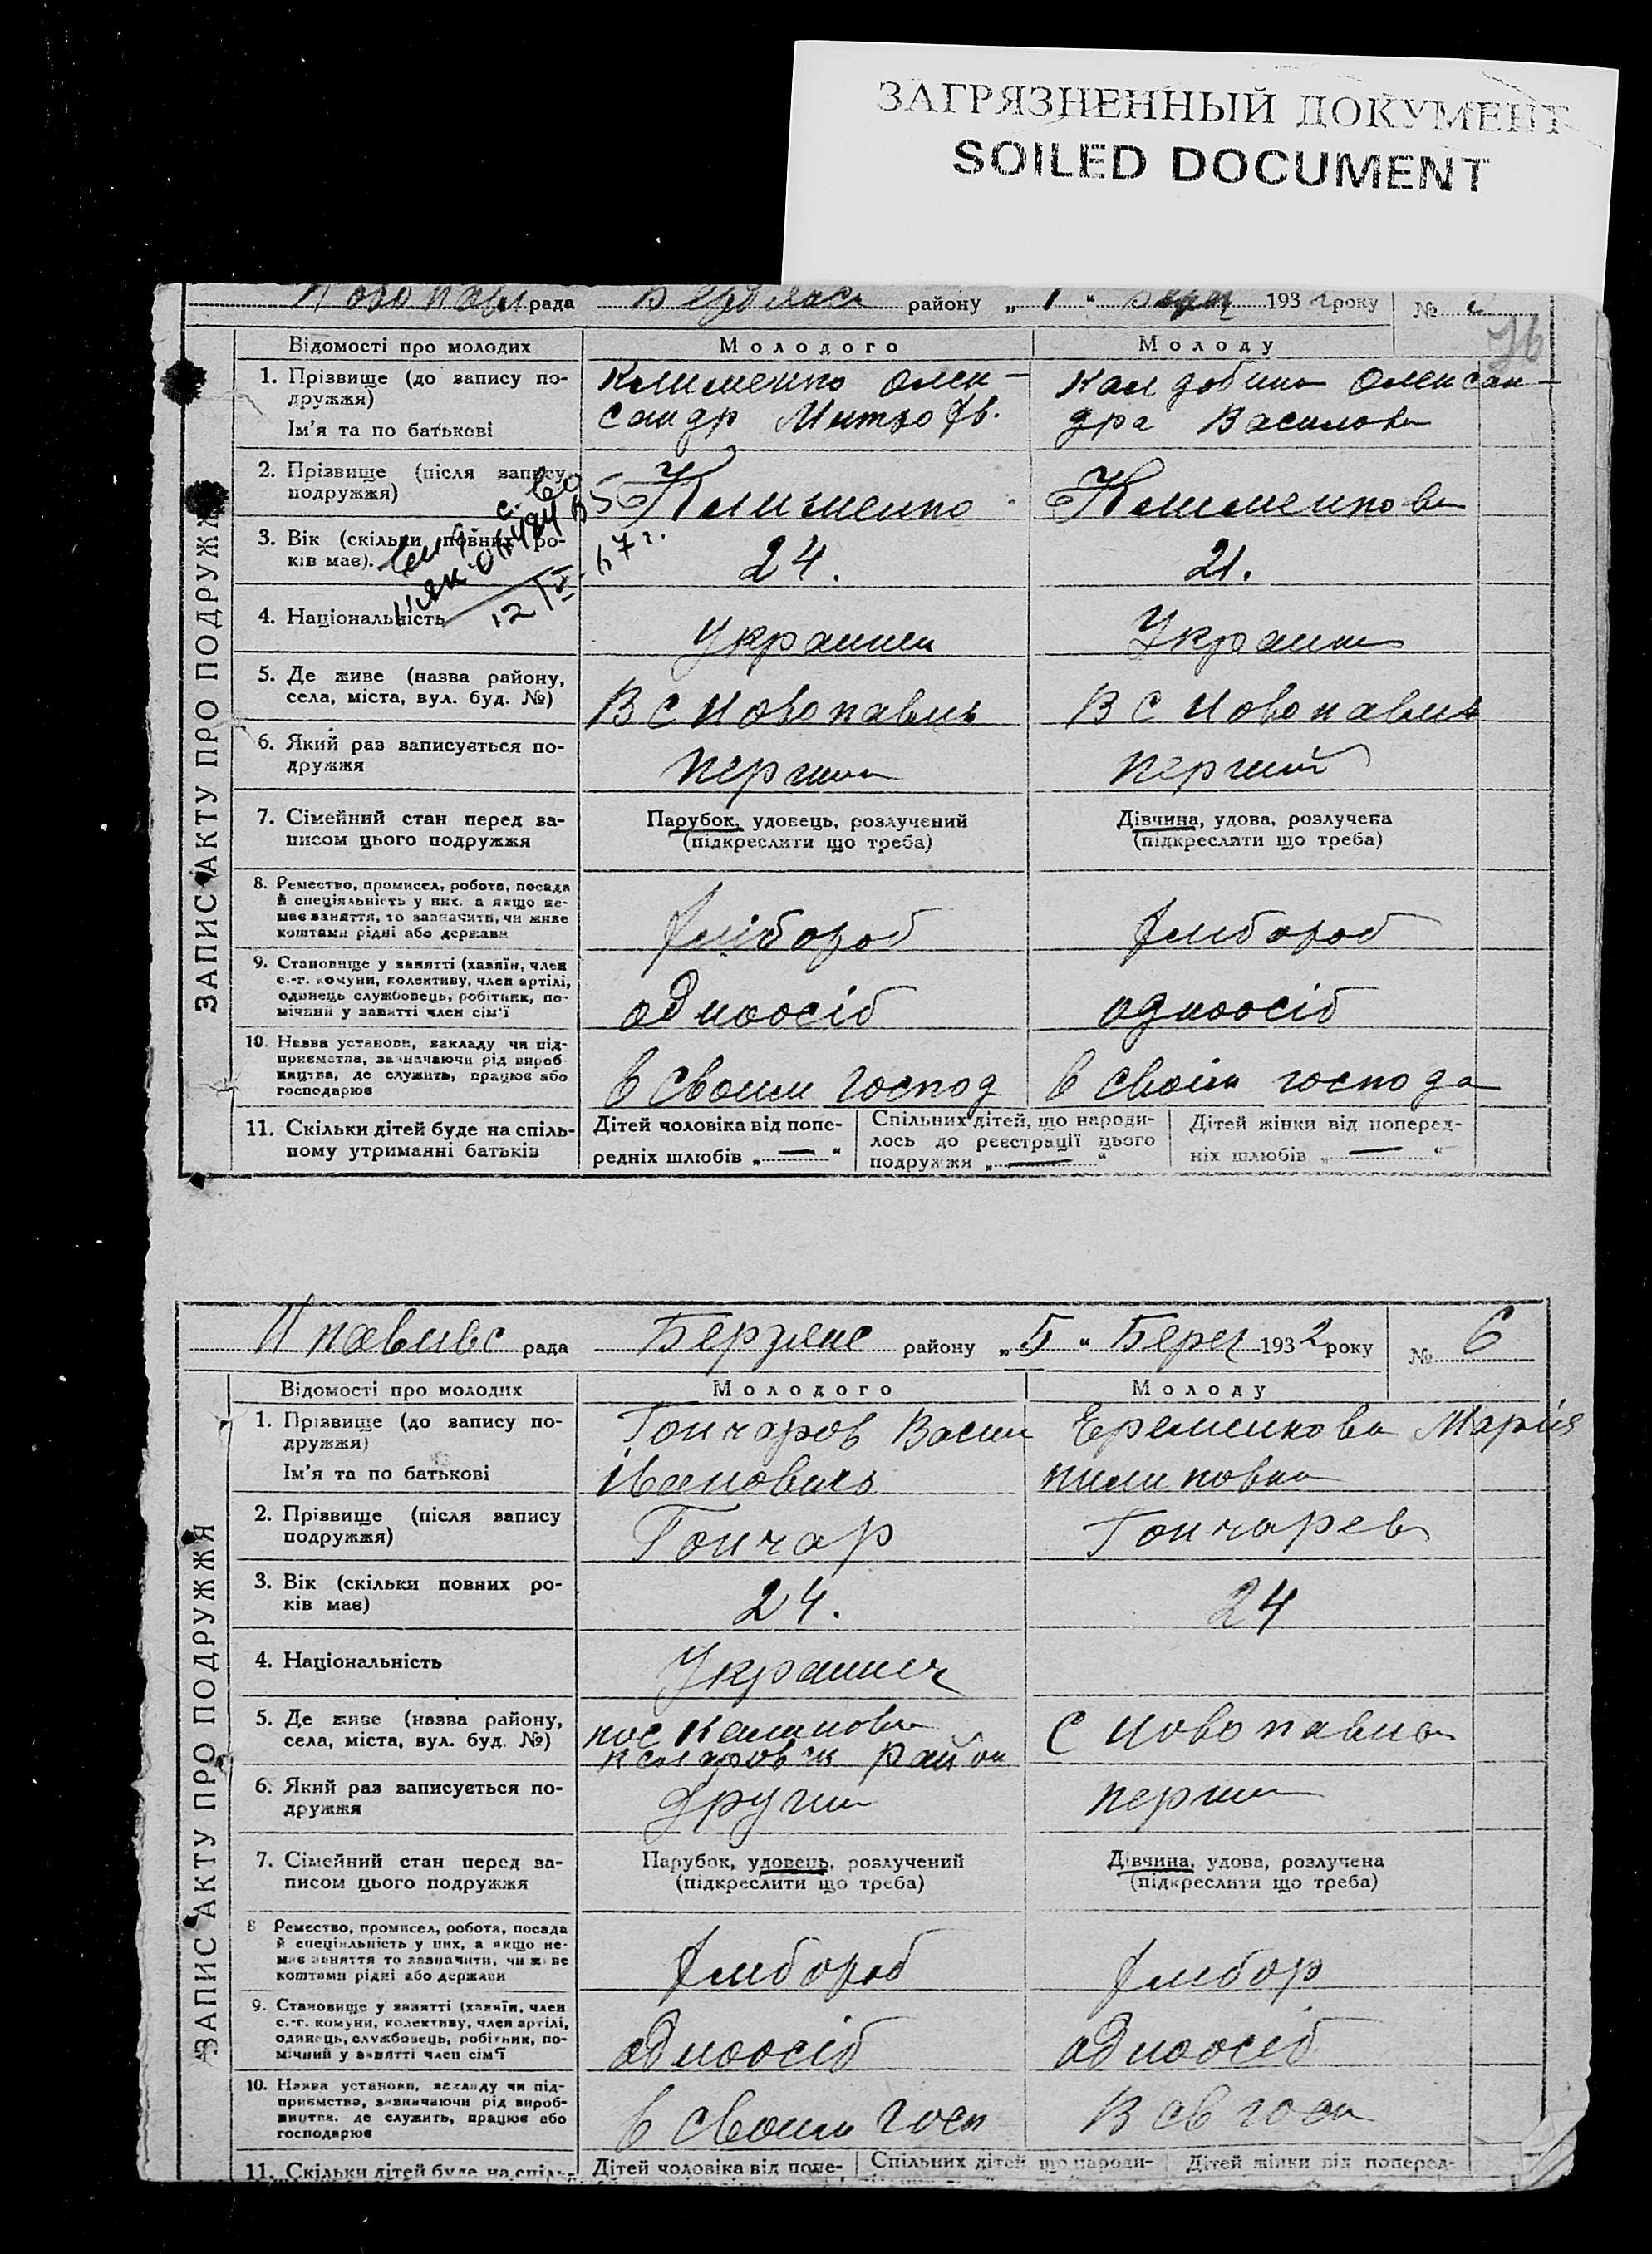 ЗАГРЯЗНЕННЫЙ ДОКУМЕНТ
SOILED DOCUMENT
рада району „ 1 “ 193 2 року №
76
ЗАПИС АКТУ ПРО ПОДРУЖЖЯ
Відомості про молодих Молодого Молоду
1. Прізвище (до запису по-
дружжя)
Ім'я та по батькові
Клименко Олек-
сандр Митроф.
Олексан-
дра Василова
2. Прізвище (після запису
подружжя)
Клименко Клименкова
3. Вік (скільки повних ро-
ків має).
24. 21.
12/ 67 г.
4. Національність
Украинец Украин
5. Де живе (назва району,
села, міста, вул. буд. №)
В с Новопавлів В с Новопавлів
6. Який раз записується по-
дружжя
перший перший
7. Сімейний стан перед за-
писом цього подружжя
Парубок, удовець, розлучений
(підкреслити що треба)
Дівчина, удова, розлучена
(підкреслити що треба)
8. Ремество, промисел, робота, посада
й спеціяльність у них, а якщо не-
має заняття, то зазначити, чи живе
коштами рідні або держави
хлібороб хлибороб
9. Становище у занятті (хазяїн, член
с.-г. комуни, колективу, член артілі,
одинець службовець, робітник, по-
мічний у занятті член сім'ї
одноосіб одноосіб
10. Назва установи, закладу чи під-
приємства, зазначаючи рід вироб-
ництва, де служить, працює або
господарює
в своим господ в своім господа
11. Скільки дітей буде на спіль-
ному утриманні батьків
Дітей чоловіка від попе-
редніх шлюбів „ — “
Спільних дітей, що народи-
лось до реєстрації цього
подружжя „ — “
Дітей жінки від поперед-
ніх шлюбів „ — “
Н павливс рада Бердянс району „ 5 “ Берез 193 2 року № 6
ЗАПИС АКТУ ПРО ПОДРУЖЖЯ
Відомості про молодих Молодого Молоду
1. Прізвище (до запису по-
дружжя)
Ім'я та по батькові
Гончаров Васил
івановичь
Еременкова Марія
пилиповна
2. Прізвище (після запису
подружжя)
Гончар Гончарев
3. Вік (скільки повних ро-
ків має)
24. 24
4. Національність
Украинец
5. Де живе (назва району,
села, міста, вул. буд. №)
пос Калинова
район
с Новопавлов
6. Який раз записується по-
дружжя
други перши
7. Сімейний стан перед за-
писом цього подружжя
Парубок, удовець, розлучений
(підкреслити що треба)
Дівчина, удова, розлучена
(підкреслити що треба)
8 Ремество, промисел, робота, посада
й спеціяльність у них, а якщо не-
має заняття то зазначити, чи живе
коштами рідні або держави
хлибороб хлибор
9. Становище у занятті (хазяїн, член
с.-г. комуни, колективу, член артілі,
одинець, службовець, робітник, по-
мічний у занятті член сім'ї
одноосіб одноосіб
10. Назва установи, закладу чи під-
приємства, зазначаючи рід вироб-
ництва, де служить, працює або
господарює
в своим госп В св госп
11. Скільки дітей буде на спіль-
Дітей чоловіка від попе-
Спільних дітей що народи-
Дітей жінки від поперед-